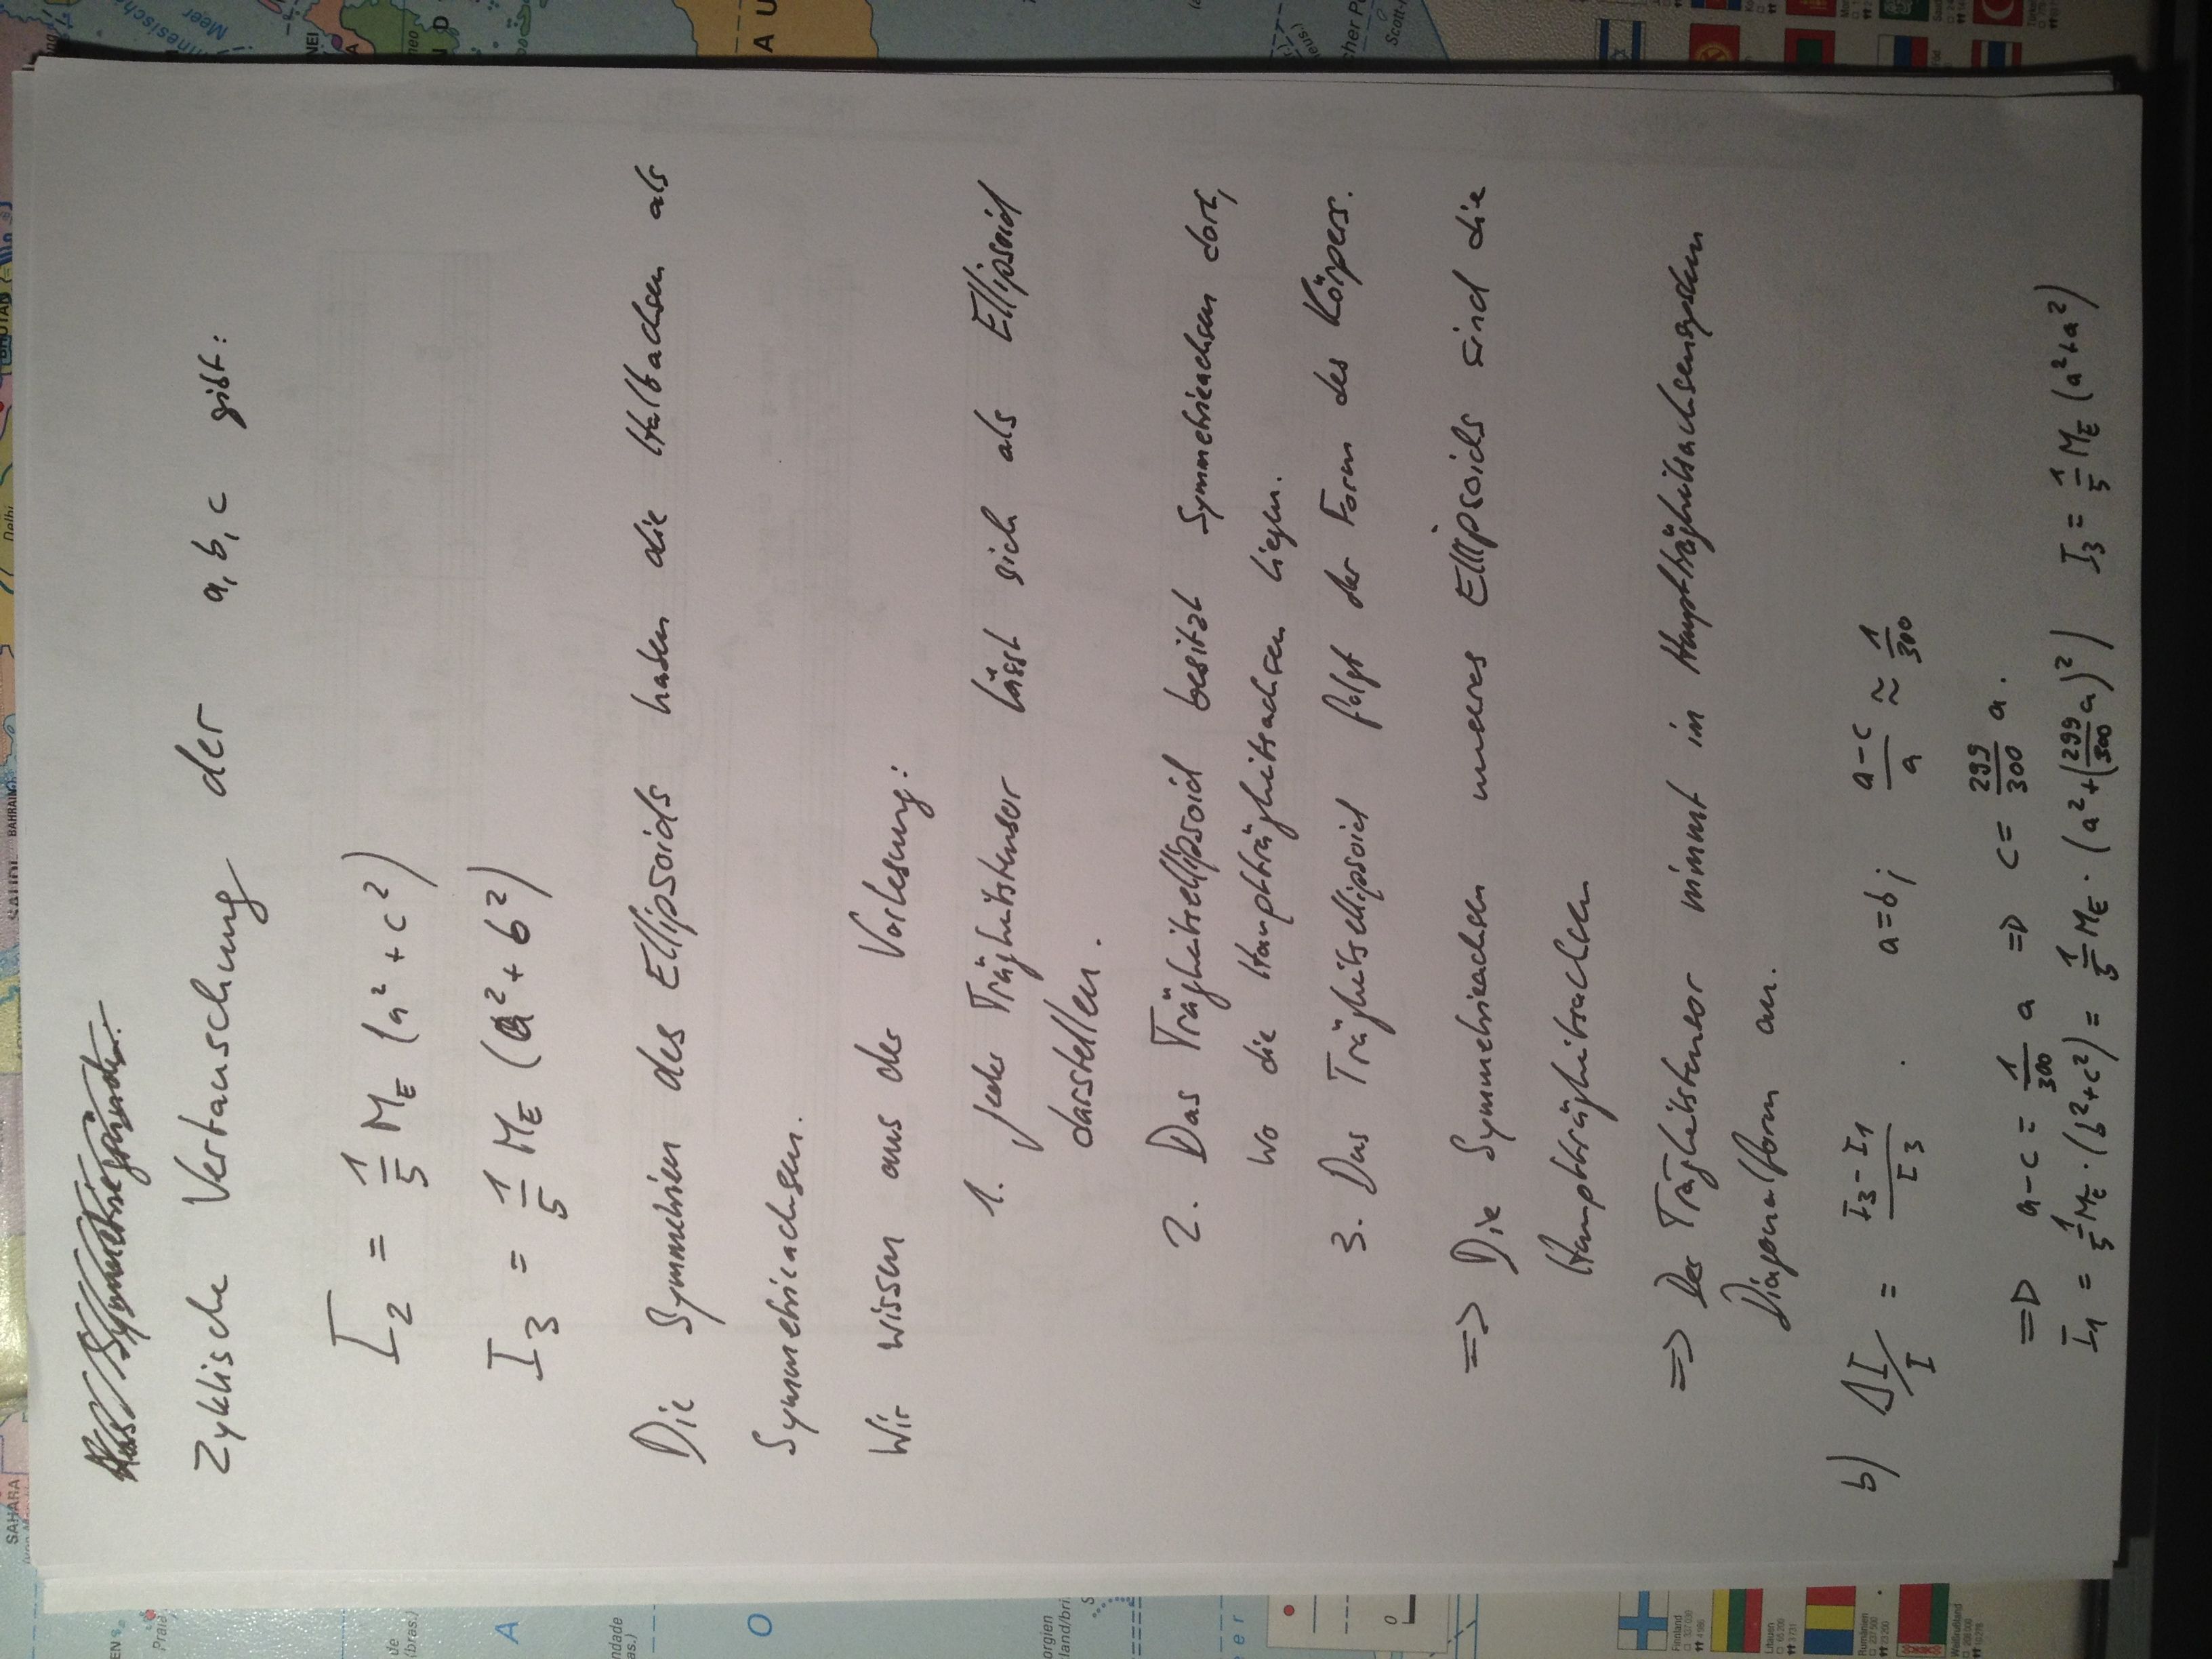 Zyklische Vertauschung der a, b, c gibt:
I₂ = 1/5 M_E (a² + c²)
I₃ = 1/5 M_E (a² + b²)
Die Symmetrien des Ellipsoids haben die Halbachsen als
Symmetrieachsen.
Wir wissen aus der Vorlesung:
1. Jeder Trägheitstensor lässt sich als Ellipsoid
darstellen.
2. Das Trägheitsellipsoid besitzt Symmetrieachsen dort,
wo die Hauptträgheitsachsen liegen.
3. Das Trägheitsellipsoid folgt der Form des Körpers.
=> Die Symmetrieachsen unseres Ellipsoids sind die
Hauptträgheitsachsen
=> Der Trägheitstensor nimmt im Hauptträgheitsachsensystem
Diagonalform an.
b) ΔI/I = (I₃ - I₁)/I₃ . a = b; (a-c)/a ≈ 1/300
=> a - c = 1/300 a => c = 299/300 a.
I₁ = 1/5 M_E · (b² + c²) = 1/5 M_E · (a² + (299/300 a)²) I₃ = 1/5 M_E (a² + a²)
SAHARA
SAUDI
BAHRAIN
Delhi
BHUTAN
A
O
A U
N D
Meer
Finnland
Litauen
Rumänien
Weißrußland